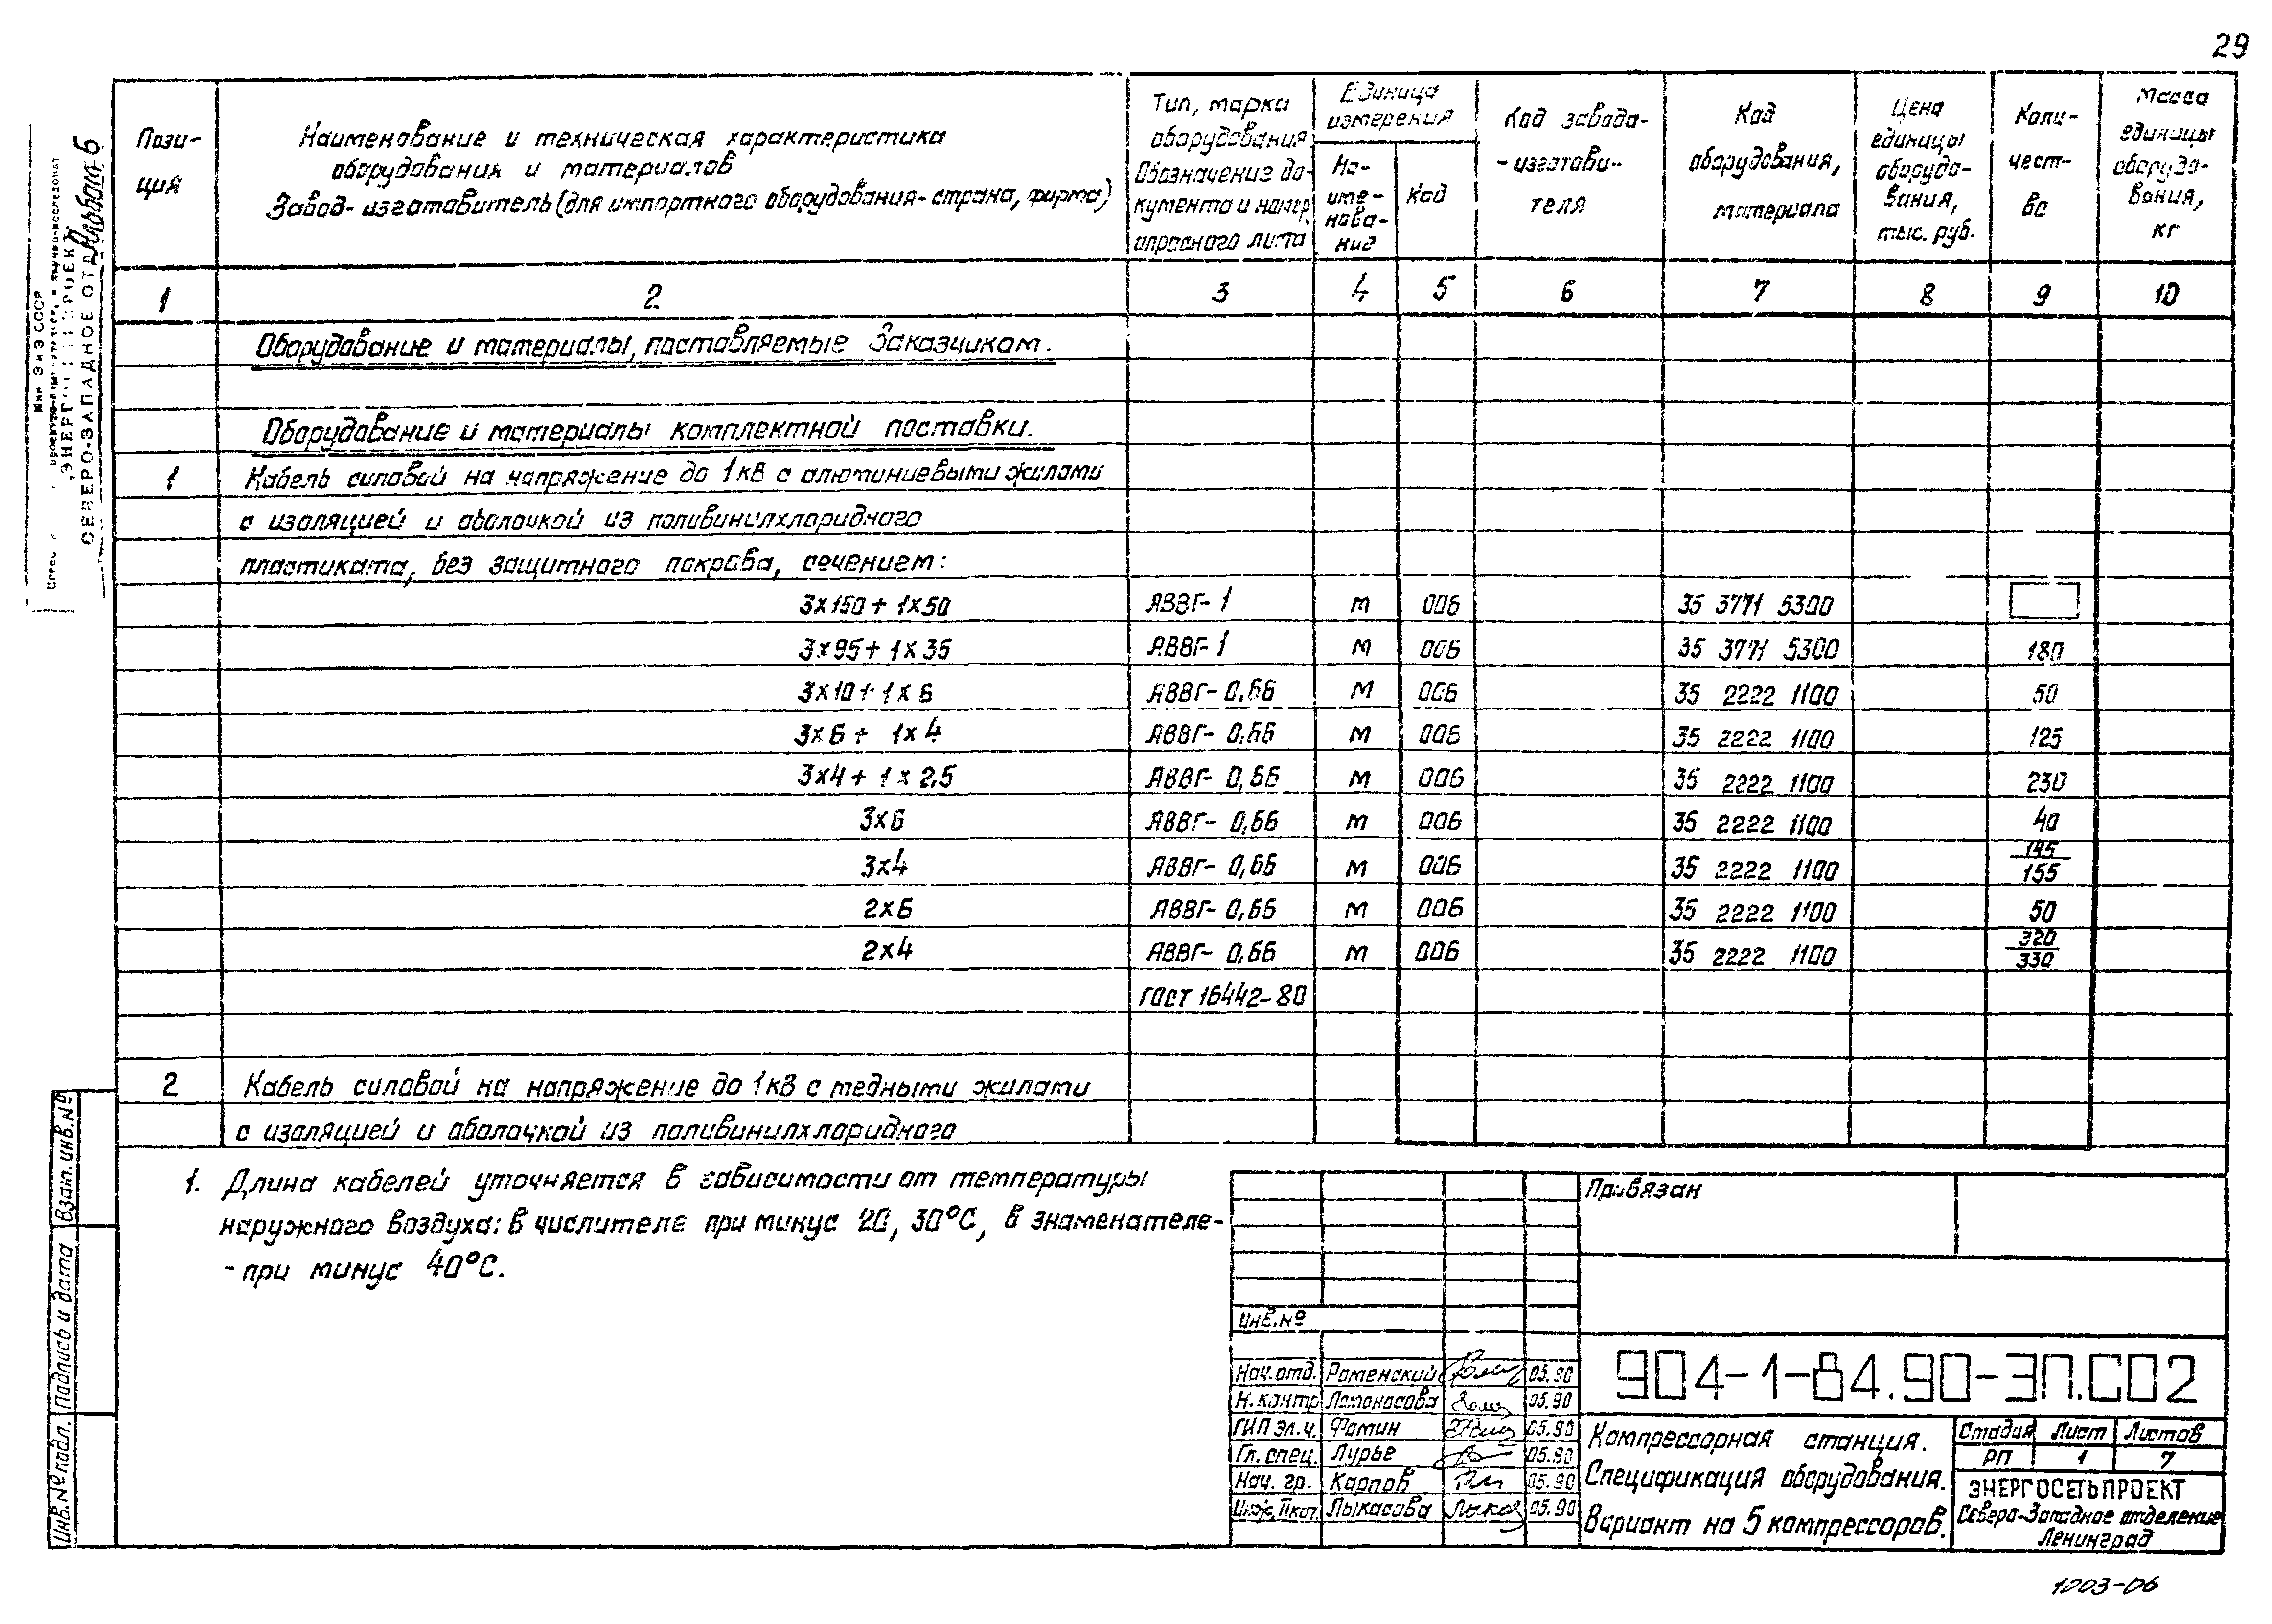 29
Альбом 6
Мин Э и Э СССР
СЕВЕРО-ЗАПАДНОЕ ОТД
Пози-
ция
Наименование и техническая характеристика
оборудования и материалов
Завод-изготавитель (для импортного оборудования-страна, фирма)
Тип, марка
оборудования
Обозначение до-
кумента и номер
опросного листа
Единица
измерения
На-
име-
нова-
ние
Код
Код завода-
-изготави-
теля
Код
оборудования,
материала
Цена
единицы
оборудо-
вания,
тыс. руб.
Коли-
чест-
во
Масса
единицы
оборудо-
вания,
кг
1 2 3 4 5 6 7 8 9 10
Оборудование и материалы, поставляемые Заказчиком.
Оборудование и материалы комплектной поставки.
1 Кабель силовой на напряжение до 1кВ с алюминиевыми жилами
с изоляцией и оболочкой из поливинилхлоридного
пластиката, без защитного покрова, сечением:
3х150 + 1х50 АВВГ-1 м 006 35 3771 5300
3х95 + 1х35 АВВГ-1 м 006 35 3771 5300 180
3х10 + 1х6 АВВГ-0,66 м 006 35 2222 1100 50
3х6 + 1х4 АВВГ-0,66 м 006 35 2222 1100 125
3х4 + 1х2,5 АВВГ-0,66 м 006 35 2222 1100 230
3х6 АВВГ-0,66 м 006 35 2222 1100 40
3х4 АВВГ-0,66 м 006 35 2222 1100 145/155
2х6 АВВГ-0,66 м 006 35 2222 1100 50
2х4 АВВГ-0,66 м 006 35 2222 1100 320/330
ГОСТ 16442-80
2 Кабель силовой на напряжение до 1кВ с медными жилами
с изоляцией и оболочкой из поливинилхлоридного
1. Длина кабелей уточняется в зависимости от температуры
наружного воздуха: в числителе при минус 20, 30°С, в знаменателе-
- при минус 40°С.
Взам. инв. №
Подпись и дата
Инв. № подл.
Привязан
Инв. №
Нач. отд. Роменский 05.90
Н. контр Ломоносова 05.90
ГИП эл.ч. Фомин 05.90
Гл. спец. Лурье 05.90
Нач. гр. Карпов 05.90
Инж. Iкат. Лыкасова 05.90
904-1-84.90-ЭП.СО2
Компрессорная станция.
Спецификация оборудования.
Вариант на 5 компрессоров.
Стадия Лист Листов
РП 1 7
ЭНЕРГОСЕТЬПРОЕКТ
Северо-Западное отделение
Ленинград
1003-06